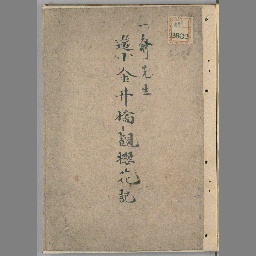 一斎先生
遊小金井橋観桜花記